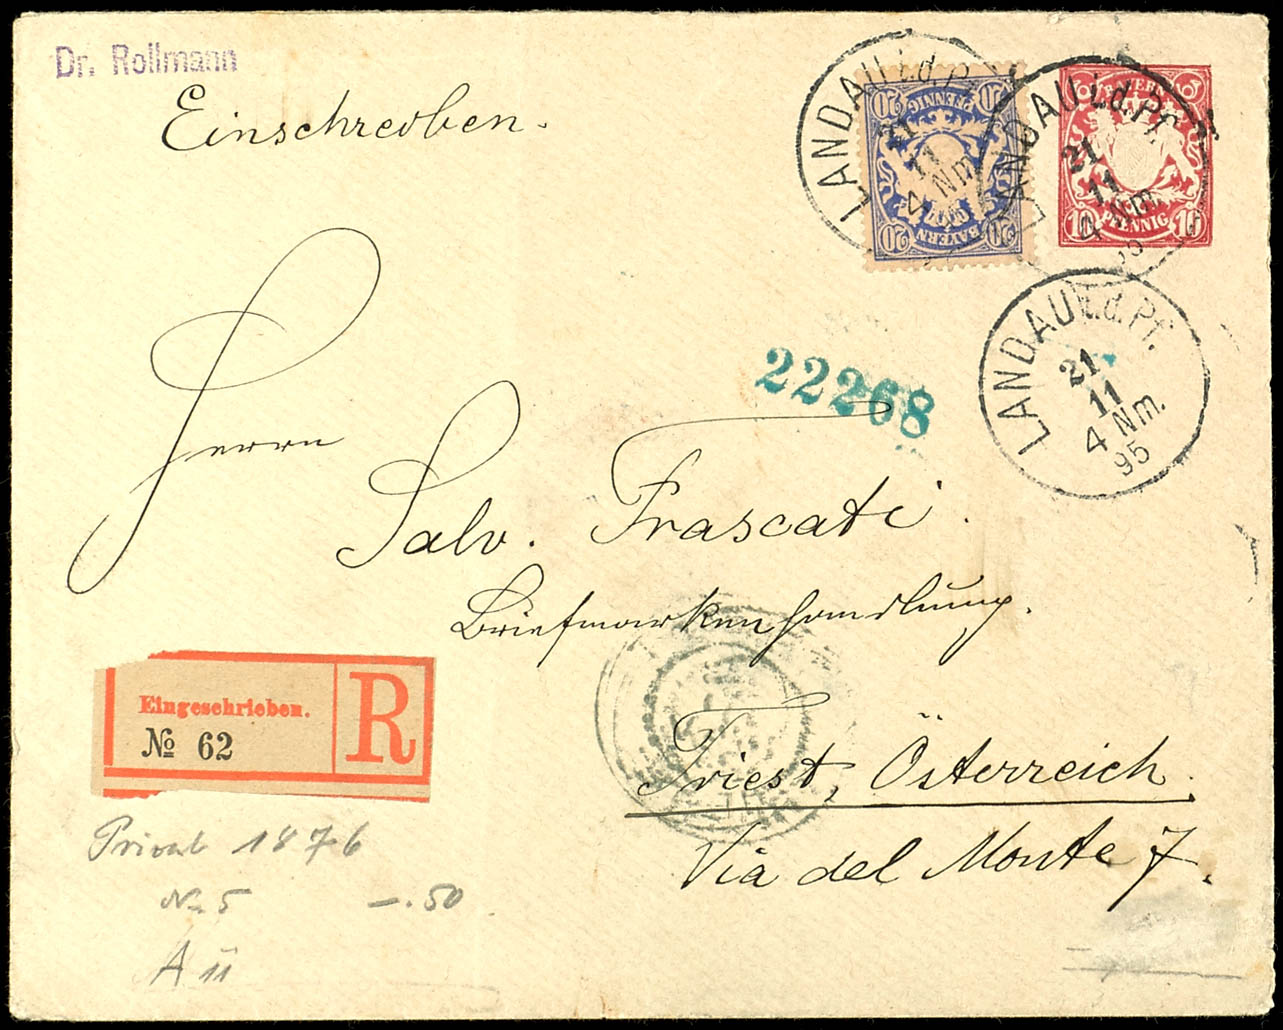 Dr. Rollmann
Einschreiben.
LANDAU i.d.Pf.
21
11
4 Nm.
20 PFENNIG 20
20 BAYERN 20
LANDAU i.d.Pf.
21
11
4 Nm.
95
BAYERN
10 PFENNIG 10
LANDAU i.d.Pf.
21
11
4 Nm.
95
22268
Herrn
Salv. Frascati.
Briefmarkenhandlung.
Triest, Österreich.
Via del Monte 7.
Eingeschrieben.
№ 62
R
Privat 1876
No 5 —.50
A ü